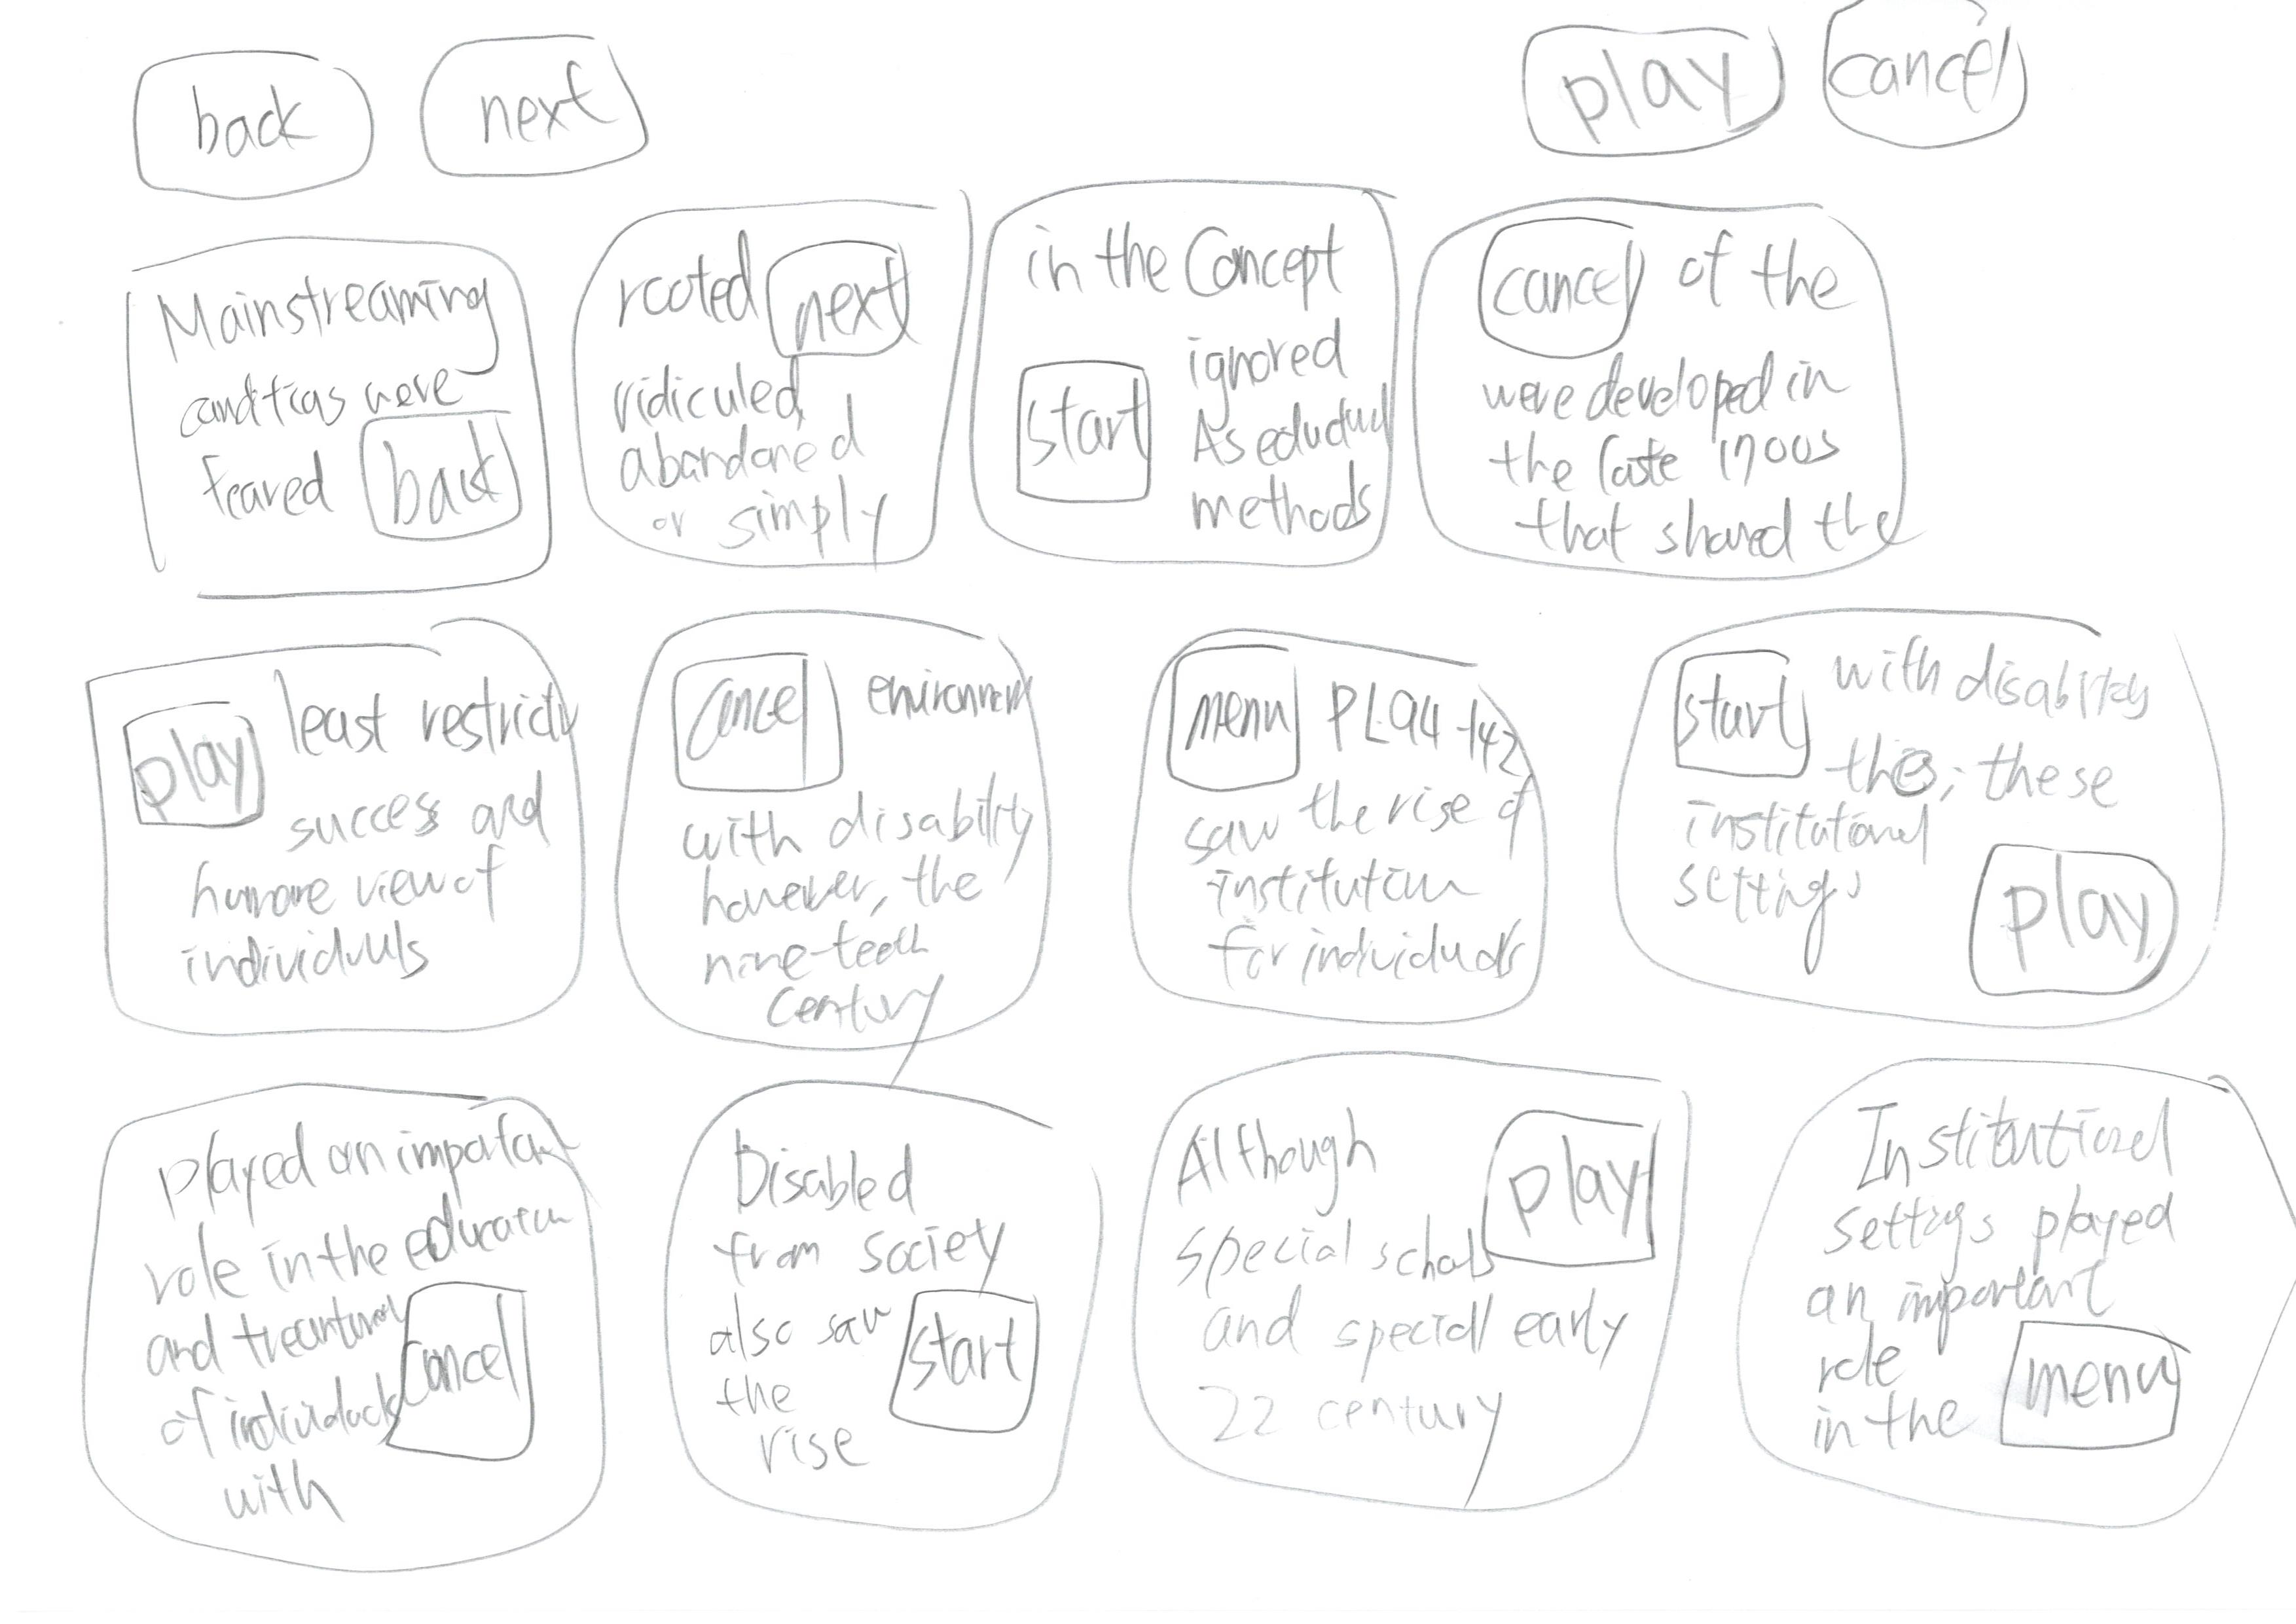 back
next
play
cancel
Mainstreaming
were
feared
back
rooted next
ridiculed,
abandoned
or simply
in the Concept
start
ignored
As
methods
cancel of the
were developed in
the late 1700s
that shared the
play
least restrictiv
success and
humane view of
individuals
cancel
environment
with disability
however, the
nine-teeth
century
menu PL94-142
saw the rise of
institution
for individuals
start
with disability
these
institutional
settings
play
played an important
role in the education
and
of individuals
with
cancel
Disabled
from society
also saw
the
rise
start
Although
play
special schools
and special early
22 century
Institutional
settings played
an important
role
in the
menu